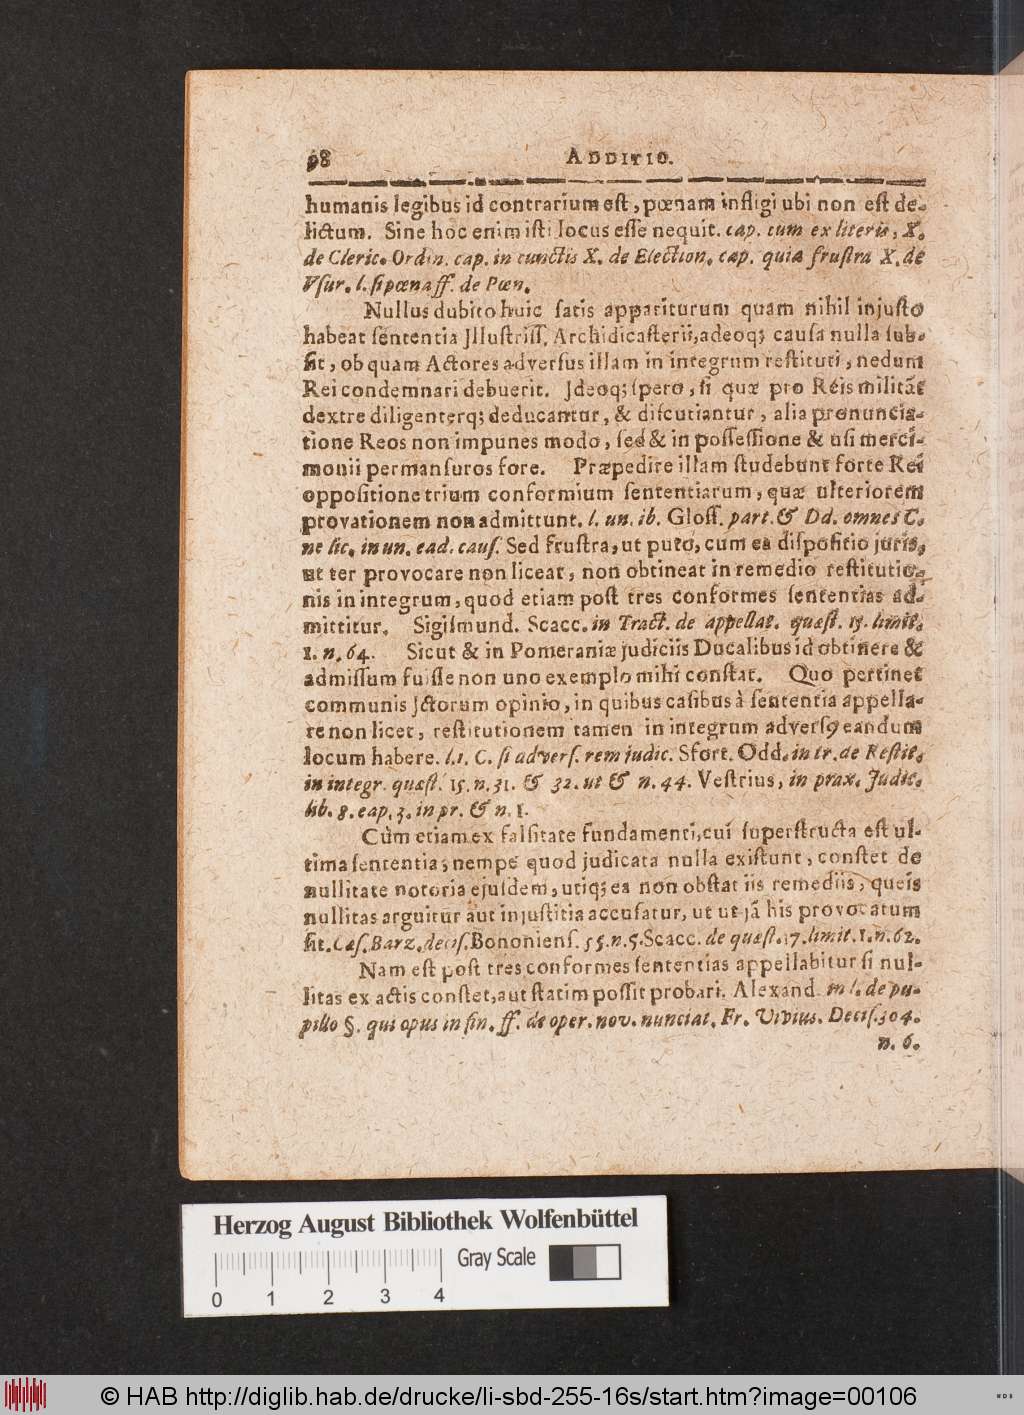 98 ADDITIO.
humanis legibus id contrarium est, pœnam infligi ubi non est de-
lictum. Sine hoc enim isti locus esse nequit. cap. cum ex literis, X.
de Cleric. Ordin. cap. in cunctis X. de Election. cap. quia frustra X. de
Vsur. l. si pœna ff. de Pœn.
Nullus dubito huic satis appariturum quam nihil injusto
habeat sententia Jllustriss. Archidicasterii, adeoq; causa nulla sub-
sit, ob quam Actores adversus illam in integrum restitui, nedum
Rei condemnari debuerit. Jdeoq; spero, si quæ pro Reis militāt
dextre diligenterq; deducantur, & discutiantur, alia pronuncia-
tione Reos non impunes modo, sed & in possessione & usi merci-
monii permansuros fore. Præpedire illam studebunt forte Rei
oppositione trium conformium sententiarum, quæ ulteriorem
provationem non admittunt. l. un. ib. Gloss. part. & Dd. omnes C.
ne lic. in un. ead. caus. Sed frustra, ut puto, cum ea dispositio juris,
ut ter provocare non liceat, non obtineat in remedio restitutio-
nis in integrum, quod etiam post tres conformes sententias ad-
mittitur. Sigismund. Scacc. in Tract. de appellat. quæst. 15. limit.
1. n. 64. Sicut & in Pomeraniæ judiciis Ducalibus id obtinere &
admissum fuisse non uno exemplo mihi constat. Quo pertinet
communis Jctorum opinio, in quibus casibus à sententia appella-
re non licet, restitutionem tamen in integrum adversꝰ eandum
locum habere. l. 1. C. si advers. rem judic. Sfort. Odd. in tr. de Restit.
in integr. quæst. 15. n. 31. & 32. ut & n. 44. Vestrius, in prax. Judic.
lib. 8. cap. 3. in pr. & n. 1.
Cùm etiam ex falsitate fundamenti, cui superstructa est ul-
tima sententia, nempe quod judicata nulla existunt, constet de
nullitate notoria ejusdem, utiq; ea non obstat iis remediis, queis
nullitas arguitur aut injustitia accusatur, ut ut jā his provocatum
sit. Cæs. Barz. decis. Bononiens. 55. n. 5. Scacc. de quæst. 17. limit. 1. n. 62.
Nam est post tres conformes sententias appellabitur si nul-
litas ex actis constet, aut statim possit probari. Alexand. in l. de pu-
pillo §. qui opus in fin. ff. de oper. nov. nunciat. Fr. Vivius. Decis. 304.
n. 6.
Herzog August Bibliothek Wolfenbüttel
Gray Scale
0 1 2 3 4
© HAB http://diglib.hab.de/drucke/li-sbd-255-16s/start.htm?image=00106
WDB